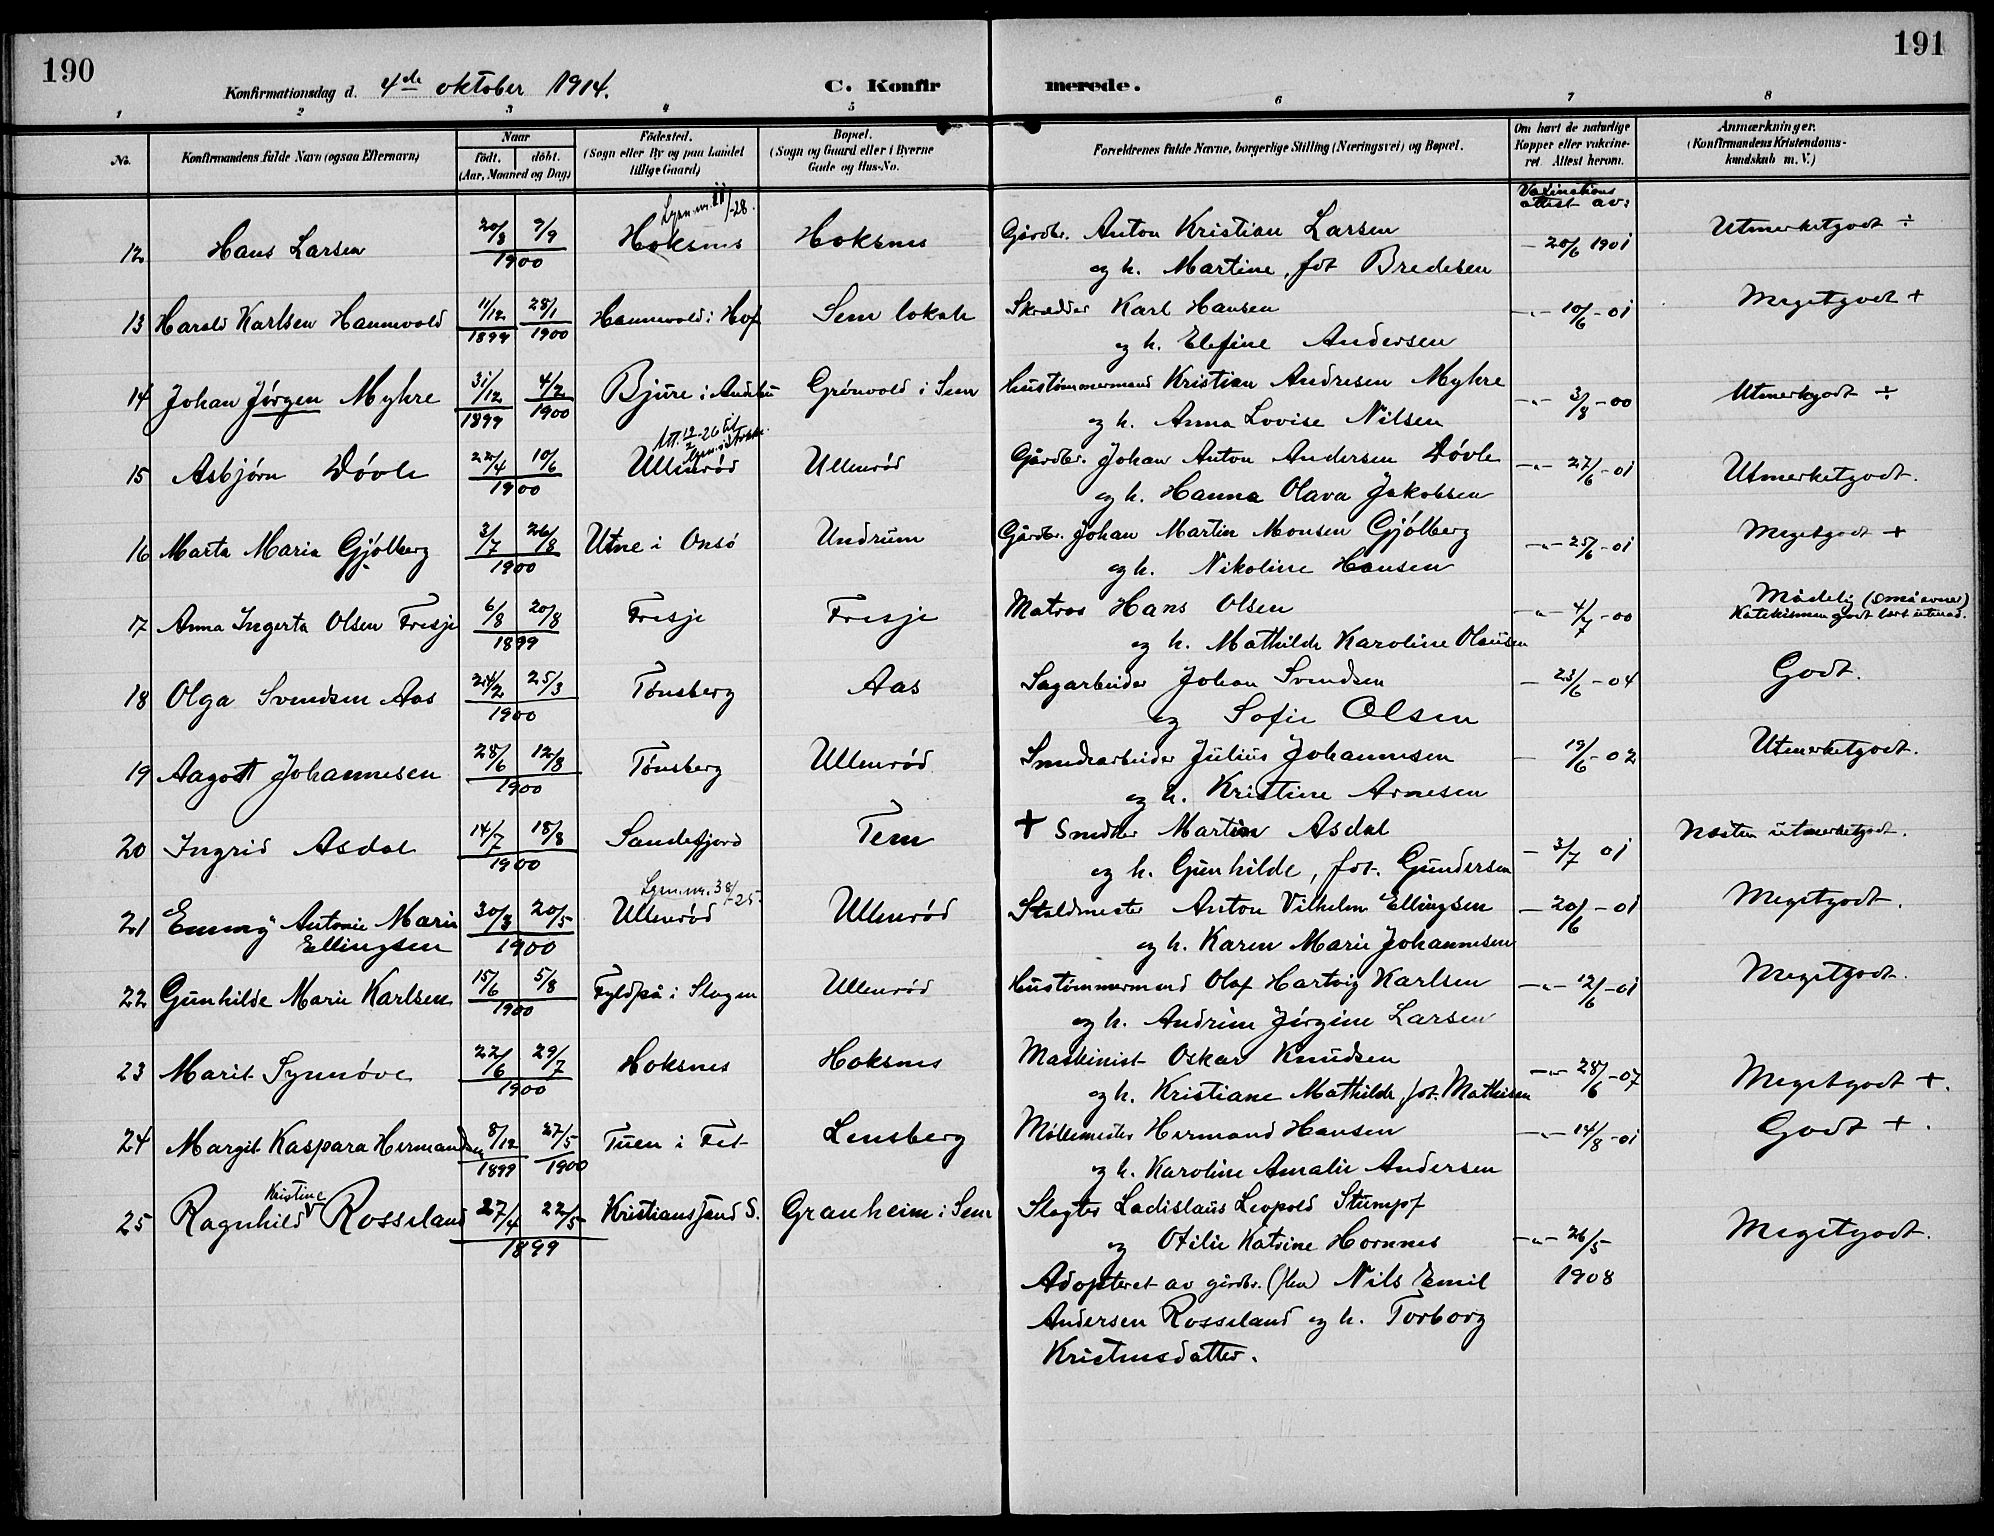 190
191
Konfirmationsdag d. 4de oktober 1914. C. Konfir merede.
1 2 3 4 5 6 7 8
No. Konfirmandens fulde Navn (ogsaa Efternavn) Naar födt. döbt. (Aar, Maaned og Dag) Födested. (Sogn eller By og paa Landet tillige Gaard) Bopæl. (Sogn og Gaard eller i Byerne Gade og Hus-No. Forældrenes fulde Navne, borgerlige Stilling (Næringsvei) og Bopæl. Om havt de naturlige Kopper eller vakcine- ret. Attest herom. Anmærkninger. (Konfirmandens Kristendoms- kundskab m. V.)
Vaxinations
attest av:
Lysn. nr. 11/-28.
12 Hans Larsen 20/8 9/9 1900 Hoksnes Hoksnes Gårdbr. Anton Kristian Larsen - 20/6 1901 Utmerketgodt ÷
og h. Martine, föt Bredesen
13 Harald Karlsen Hannevold 11/12 1899 28/1 1900 Hannevold i Hof Sem lokale Skrædder Karl Hansen -"- 10/6 - 01 Megetgodt +
og h. Elefine Andersen
14 Johan Jörgen Myhre 31/12 1899 4/2 1900 Bjure i Andebu Grönvold i Sem Hustömmermand Kristian Andresen Myhre -"- 3/8 - 00 Utmerkgodt ÷
og h. Anna Lovise Nilsen
Att. 19/2-26 til
15 Asbjörn Dövle 22/4 10/6 1900 Ullenröd Ullenröd Gårdbr. Johan Anton Andersen Dövle -"- 27/6 - 01 Utmerketgodt.
og h. Hanna Olava Jakobsen
16 Marta Maria Gjölberg 3/7 26/8 1900 Utne i Onsö Undrum Gårdbr. Johan Martin Monsen Gjölberg -"- 25/6 - 01 Megetgodt +
og h. Nikoline Hansen
17 Anna Ingerta Olsen Fresje 6/8 20/8 1899 Fresje Fresje Matros Hans Olsen -"- 4/7 - 00 Mådelig (små evner)
Katekismen godt lært utenad.
og h. Mathilde Karoline Olausen
18 Olga Svendsen Aas 24/2 25/3 1900 Tønsberg Aas Sagarbeider Johan Svendsen - 23/6 - 04 Godt.
og Sofie Olsen
19 Aagott Johannesen 28/6 12/8 1900 Tønsberg Ullenröd Smedearbeider Julius Johannesen - 19/6 - 02 Utmerketgodt.
og h. Kristine Arnesen
20 Ingrid Asdal 14/7 18/8 1900 Sandefjord Tem + Snedker Martin Asdal - 3/7 01 Næsten utmerketgodt.
og h. Gunhilde, föt. Gundersen
Lysn. nr. 38/-25.
21 Emmy Antonie Marie 30/3 20/5 1900 Ullenröd Ullenröd Staldmester Anton Vilhelm Ellingsen - 20/6 - 01 Megetgodt.
Ellingsen og h. Karen Marie Johannesen
22 Gunhilde Marie Karlsen 15/6 5/8 1900 Fyldpå i Slagen Ullenröd Hustömmermand Olaf Hartvig Karlsen -"- 12/6 - 01 Megetgodt.
og h. Andrine Jörgine Larsen
23 Marit Synnöve 22/6 29/7 1900 Hoksnes Hoksnes Maskinist Oskar Knudsen
og h. Kristiane Mathilde, föt. Mathisen -"- 28/6 - 07 Megetgodt +.
24 Margit Kaspara Hermandsen 8/12 1899 27/5 1900 Tuen i Fet Lensberg Möllemester Hermand Hansen -"- 14/8 - 01 Godt +.
og h. Karoline Amalie Andersen
25 Ragnhild Kristine Rosseland 27/4 22/5 1899 Kristiansand S. Granheim i Sem Slagter Ladislaus Leopold Stumpf Megetgodt.
og Otilie Katrine Hornnes -"- 26/5
Adopteret av gårdbr. Nils Emil 1908
Andersen Rosseland og h. Torborg
Kristensdatter.